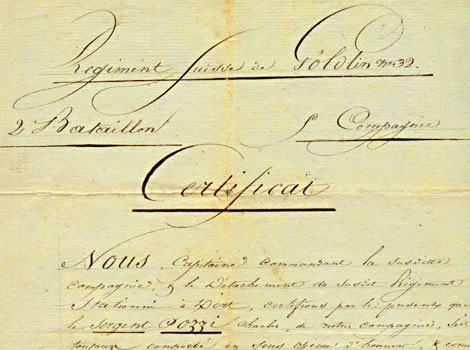 Regiment Suisse de Göldlin No. 32.
2 Bataillon 5 Compagnie
Certificat
Nous, Capitaine commandant la susdite
compagnie, & le Detachement du susdit Régiment
Stationné à Dort, certifions par le present que
le Sergent Pozzi Charles, de notre compagnie, s'est
toujours comporté en tous